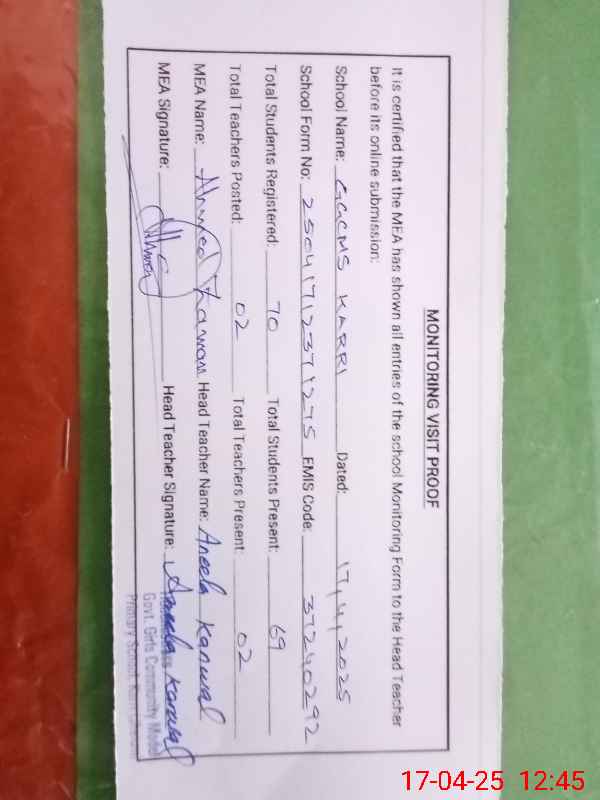 MONITORING VISIT PROOF
It is certified that the MEA has shown all entries of the school Monitoring Form to the Head Teacher
before its online submission:
School Name: GGCMS KARRI Dated: 17/4/2025
School Form No: 25041712371275 EMIS Code: 37240292
Total Students Registered: 70 Total Students Present: 69
Total Teachers Posted: 02 Total Teachers Present: 02
MEA Name: Ahmed Head Teacher Name: Aneela Kanwal
MEA Signature: Head Teacher Signature: Aneela Kanwal
Govt. Girls Community Model
Primary School,
17-04-25 12:45